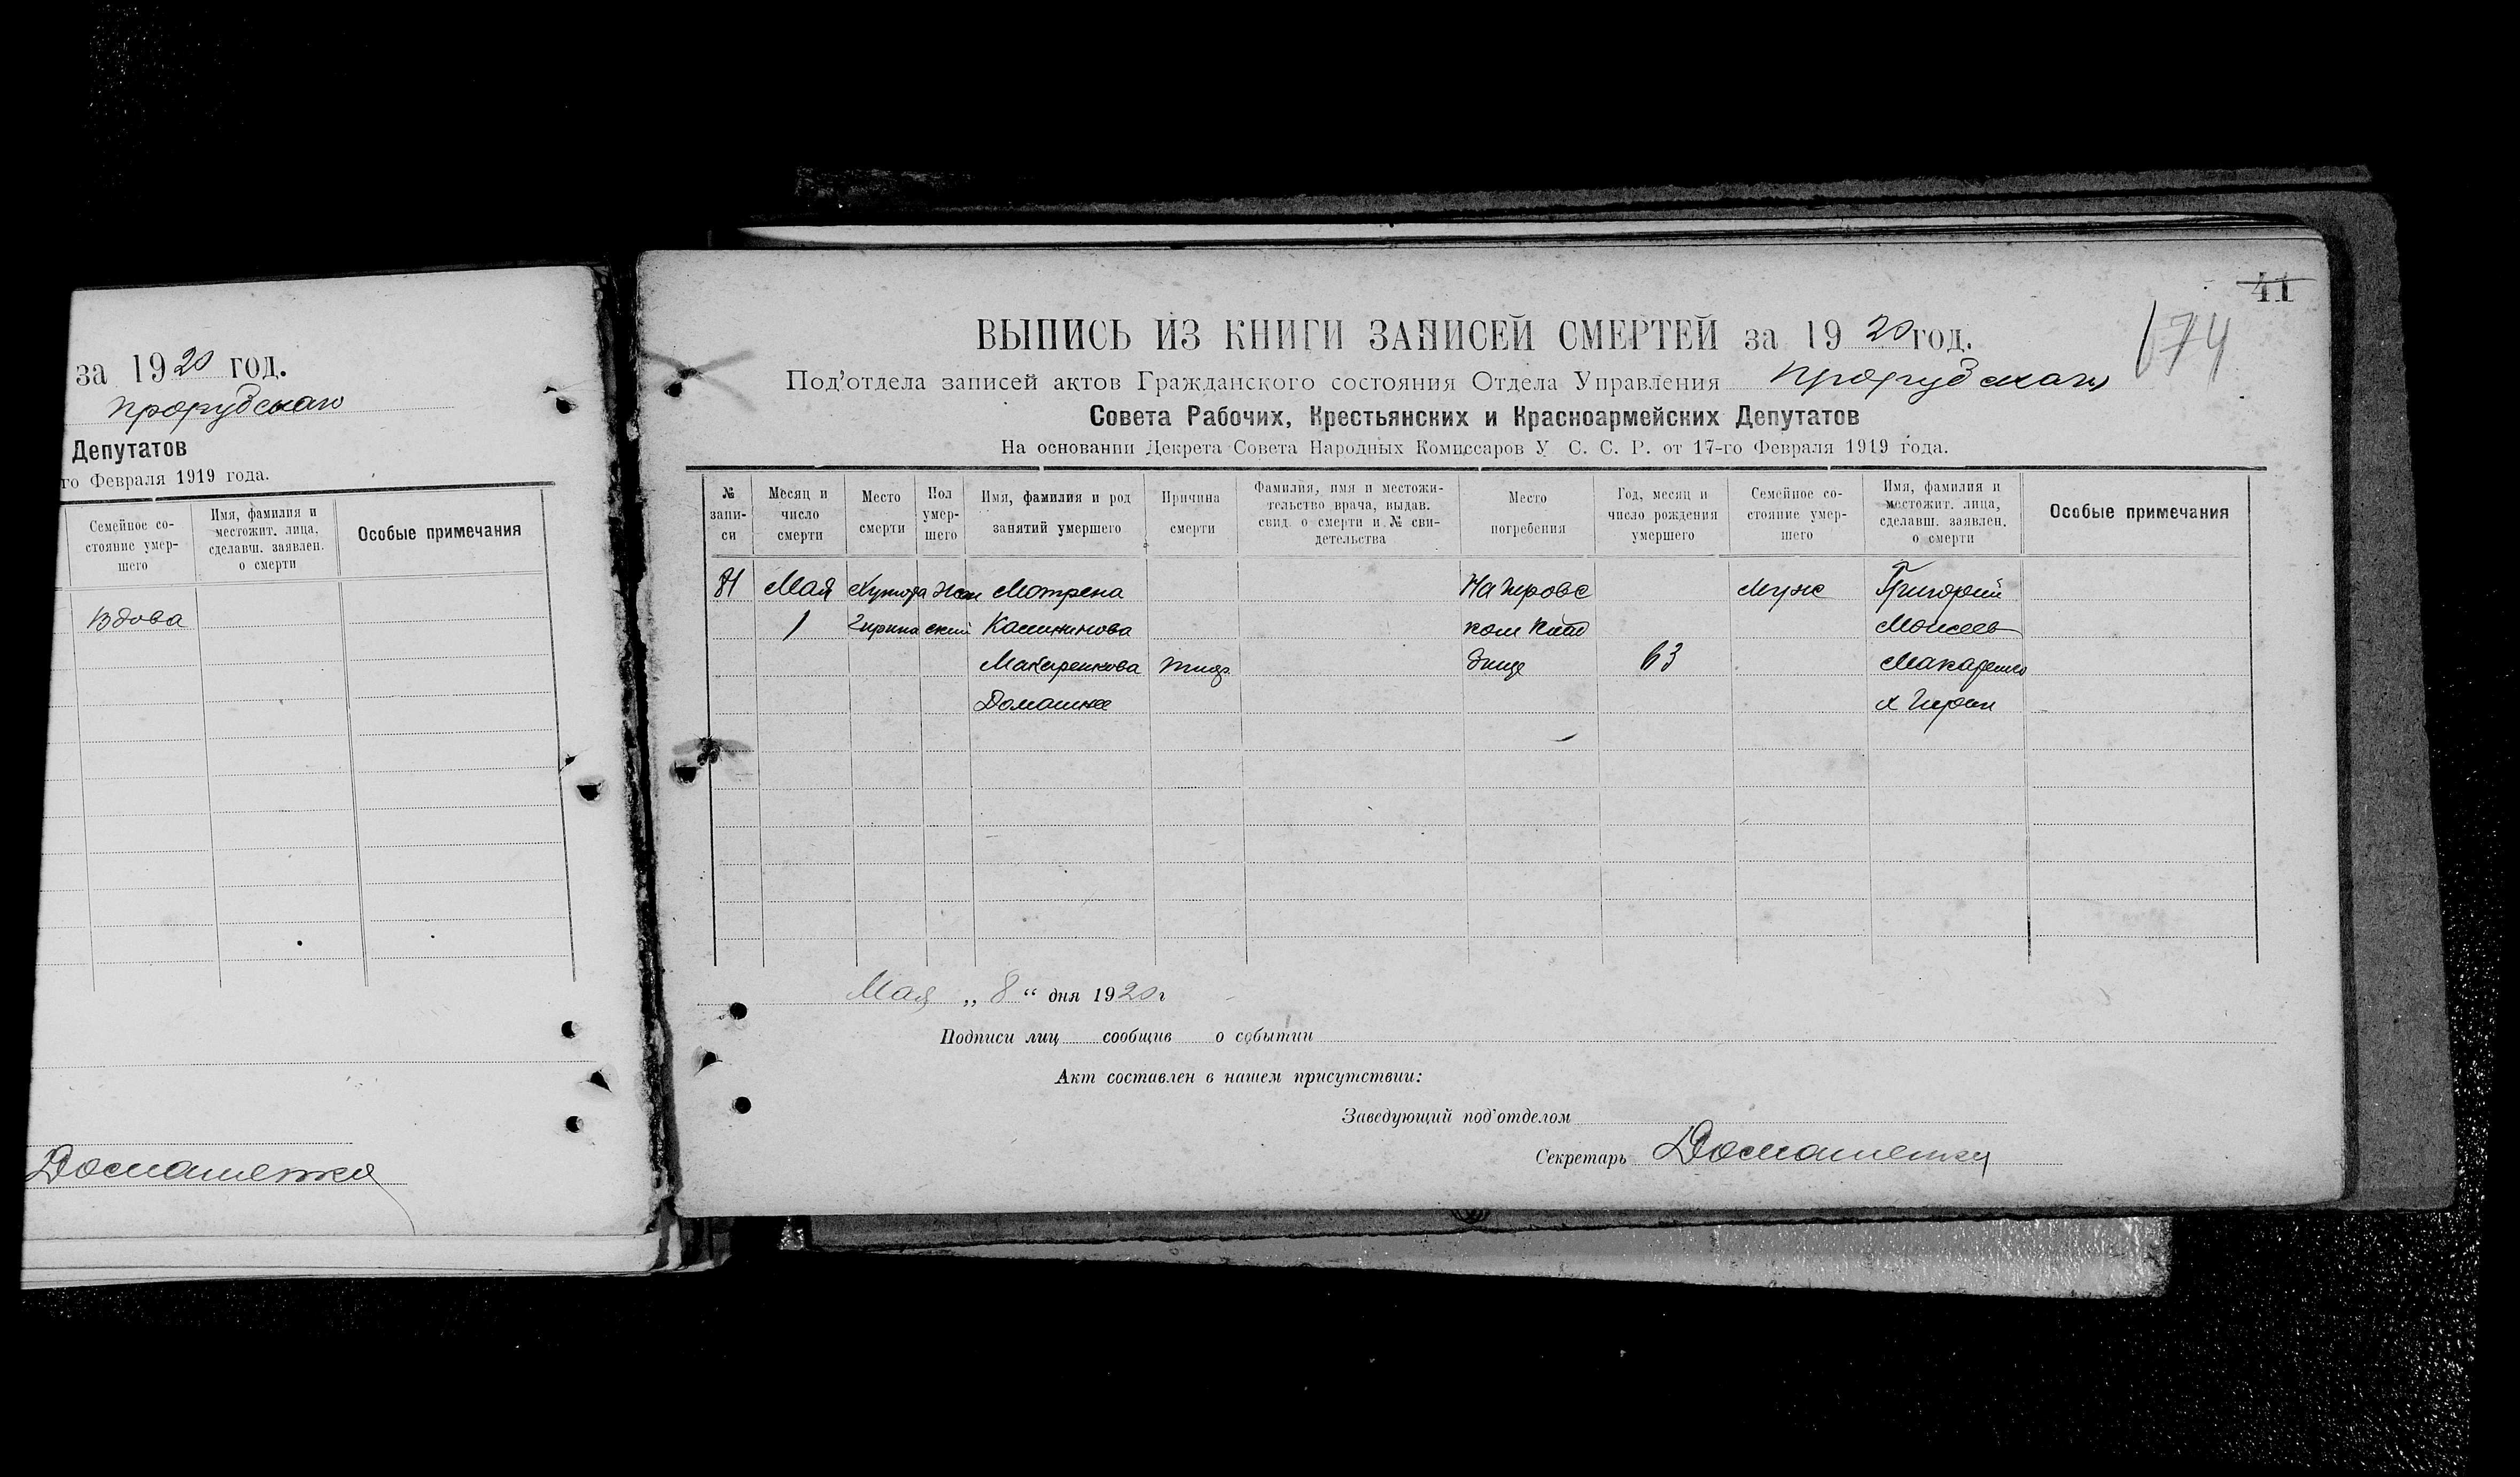 за 1920 год.
Прорубскаго
Депутатов
го Февраля 1919 года.
Семейное со-
стояние умер-
шего
Имя, фамилия и
местожит. лица,
сделавш. заявлен.
о смерти
Особые примечания
Вдова
Домашенко
41
174
ВЫПИСЬ ИЗ КНИГИ ЗАПИСЕЙ СМЕРТЕЙ за 1920 год.
Под'отдела записей актов Гражданского состояния Отдела Управления Прорубскаго
Совета Рабочих, Крестьянских и Красноармейских Депутатов
На основании Декрета Совета Народных Комиссаров У. С. С. Р. от 17-го Февраля 1919 года.
№
запи-
си
Месяц и
число
смерти
Место
смерти
Пол
умер-
шего
Имя, фамилия и род
занятий умершего
Причина
смерти
Фамилия, имя и местожи-
тельство врача, выдав.
свид. о смерти и № сви-
детельства
Место
погребения
Год, месяц и
число рождения
умершего
Семейное со-
стояние умер-
шего
Имя, фамилия и
местожит. лица,
сделавш. заявлен.
о смерти
Особые примечания
81 Мая Хутора Жен Мотрена На Мужс Григорий
1 ский ком Клад Моисеев
Макаренкова тиф. бище 63 Макаренко
Домашнее х
Мая „ 8 “ дня 1920 г
Подписи лиц сообщив о событии
Акт составлен в нашем присутствии:
Заведующий под'отделом
Секретарь Домашенко